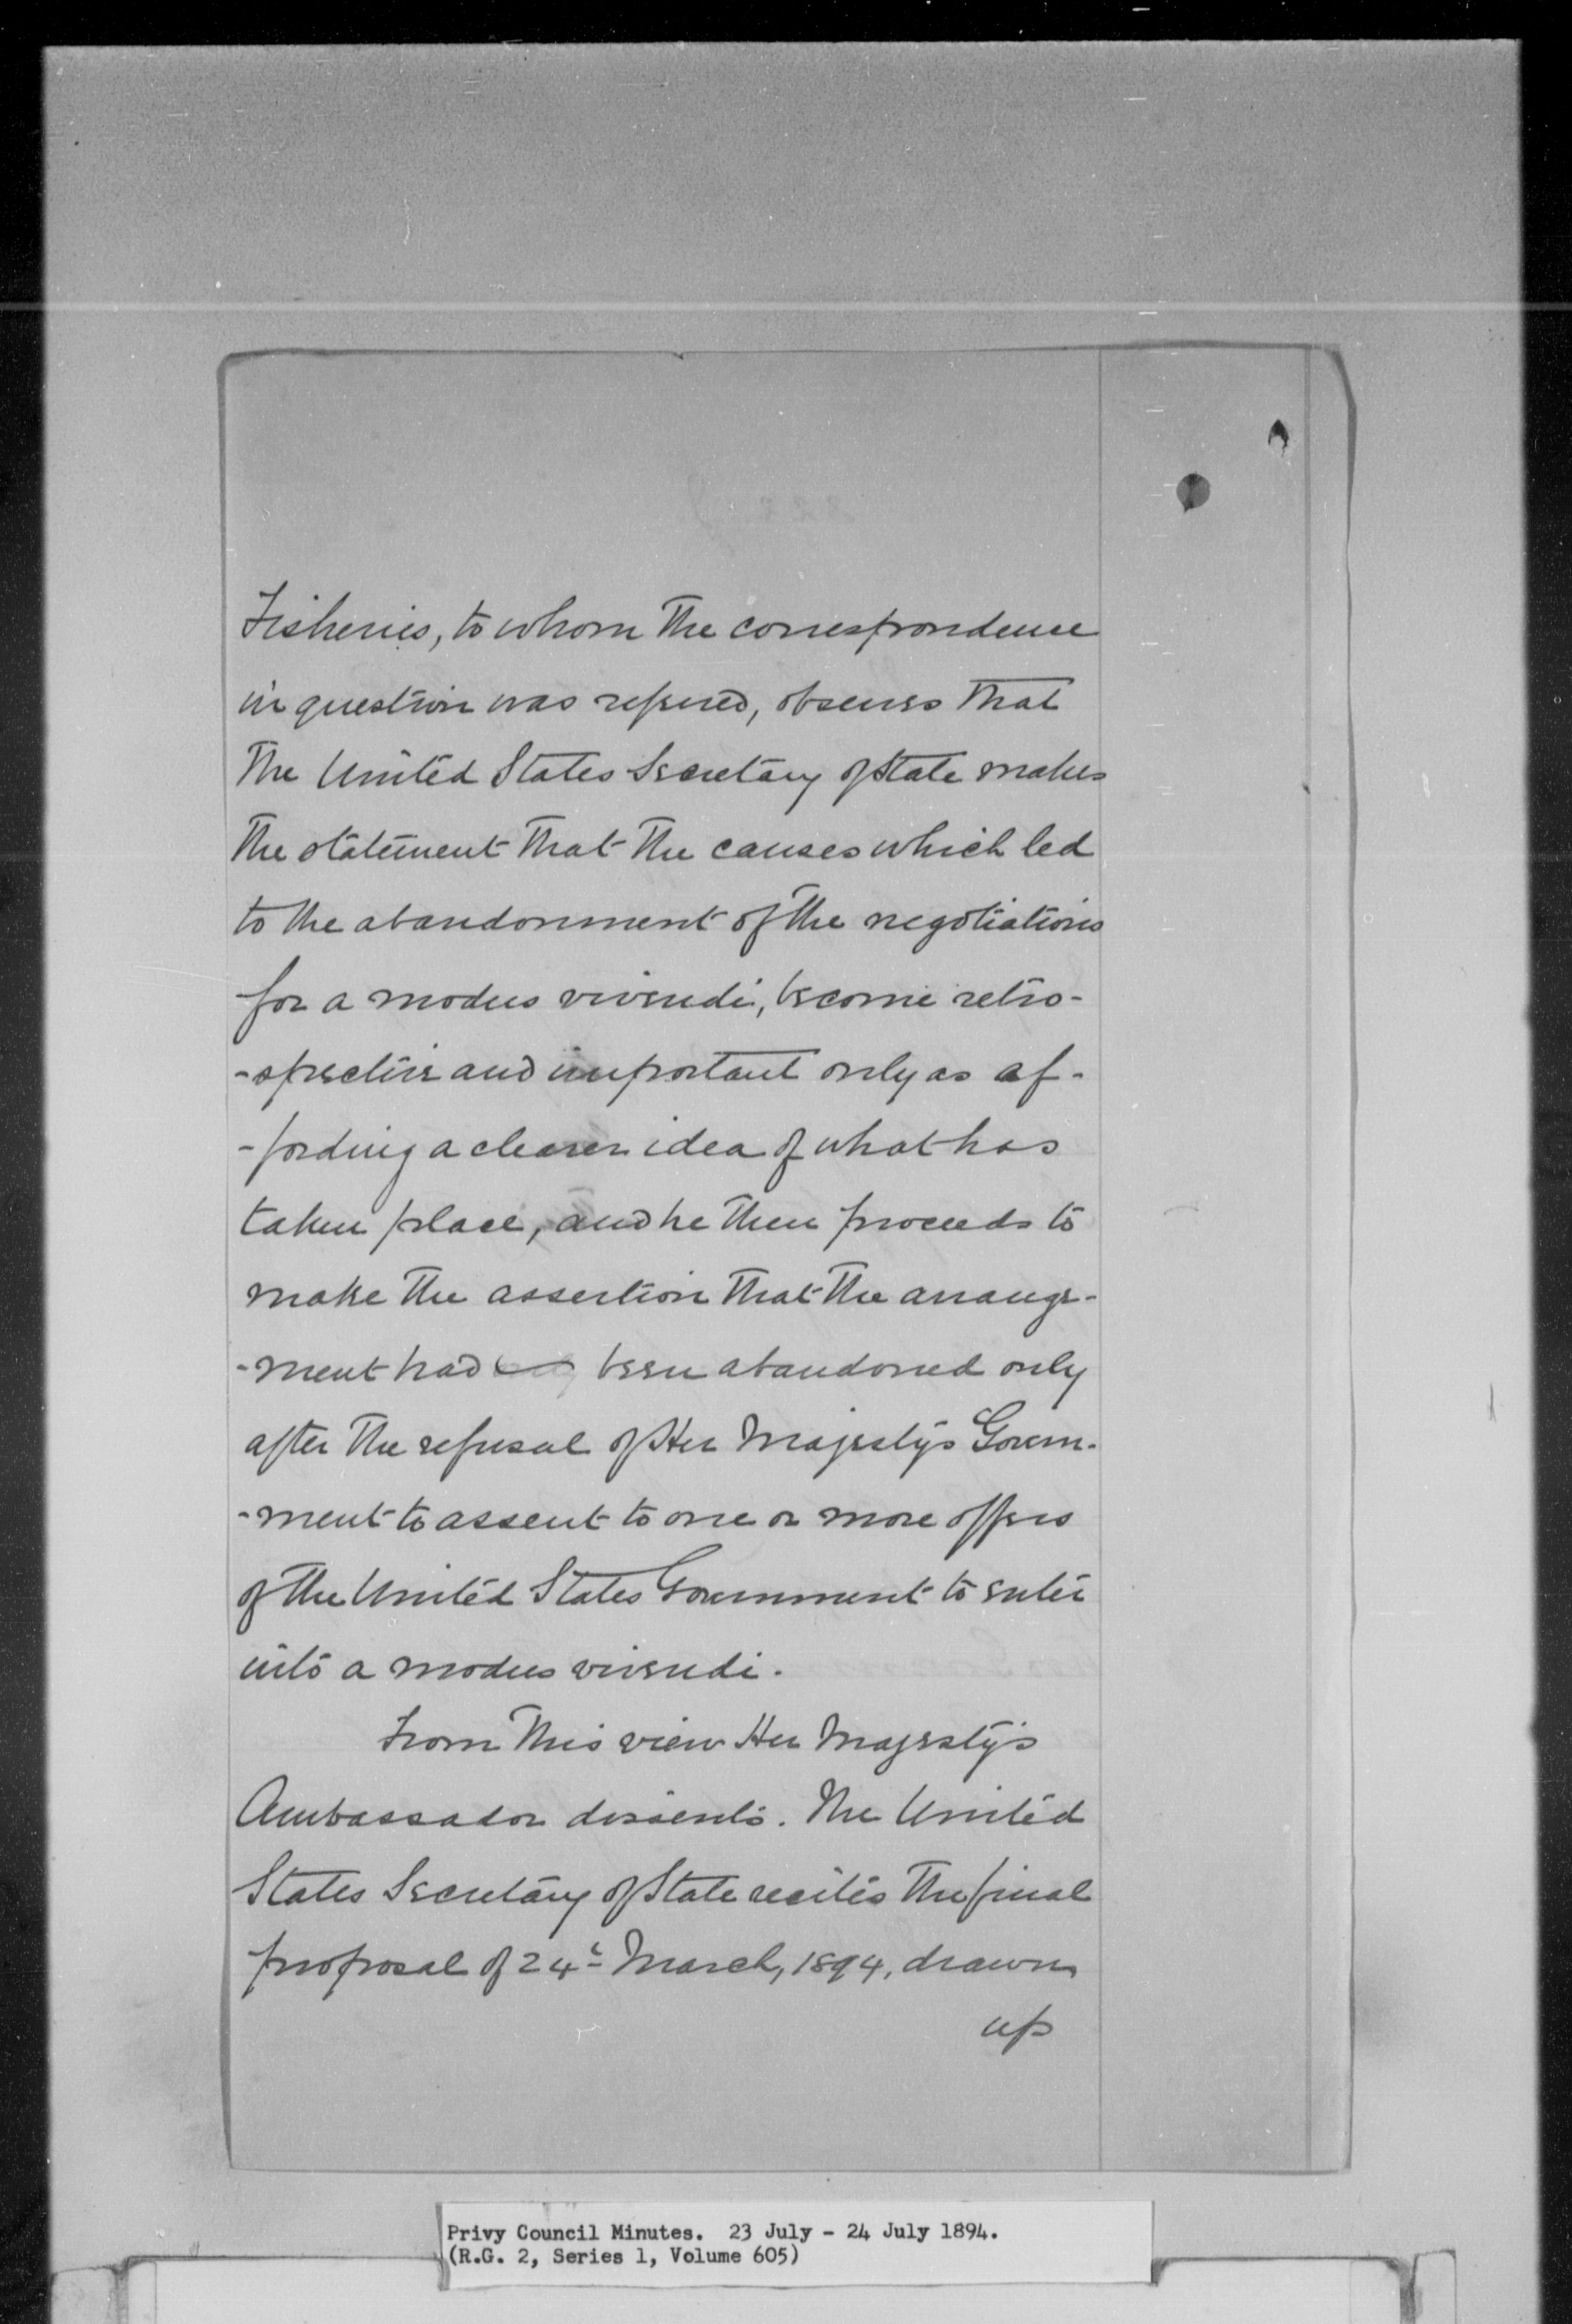 Fisheries, to whom the correspondence
in question was referred, observes that
the United States Secretary of State makes
the statement that the causes which led
to the abandonment of the negotiations
for a modus vivendi, become retro-
-spective and important only as af-
-fording a clearer idea of what has
taken place, and he then proceeds to
make the assertion that the arrange-
-ment had been abandoned only
after the refusal of Her Majesty's Govern-
-ment to assent to one or more offers
of the United States Government to enter
into a modus vivendi.
From this view Her Majesty's
Ambassador dissents. The United
States Secretary of State recites the final
proposal of 24th March, 1894, drawn
up
Privy Council Minutes. 23 July - 24 July 1894.
(R.G. 2, Series 1, Volume 605)